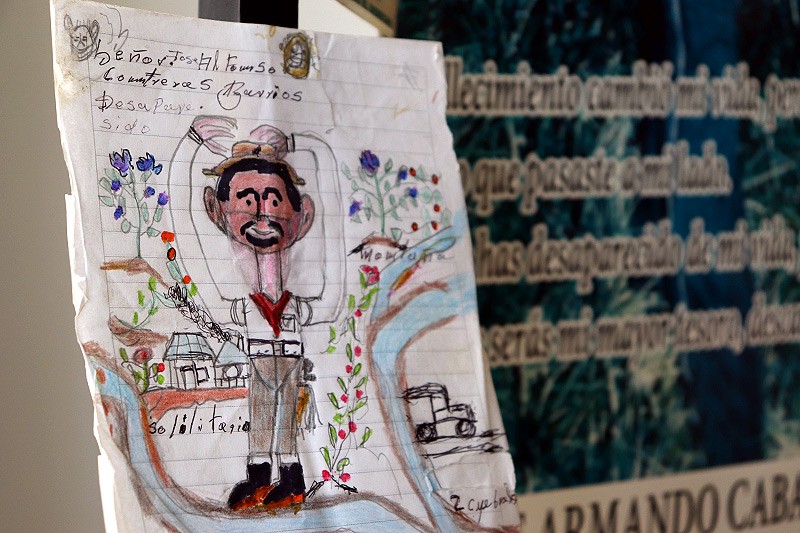 Señor. Jose Alfonso
Contreras Barrios
Desapare.
sido
Montaña
Solilitario
2 Cuebradas
llecimiento cambió mi vida, pero
que pasaste conmillada.
has desaparecido de mi vida,
serás mi mayor tesoro, descan
ARMANDO CABA